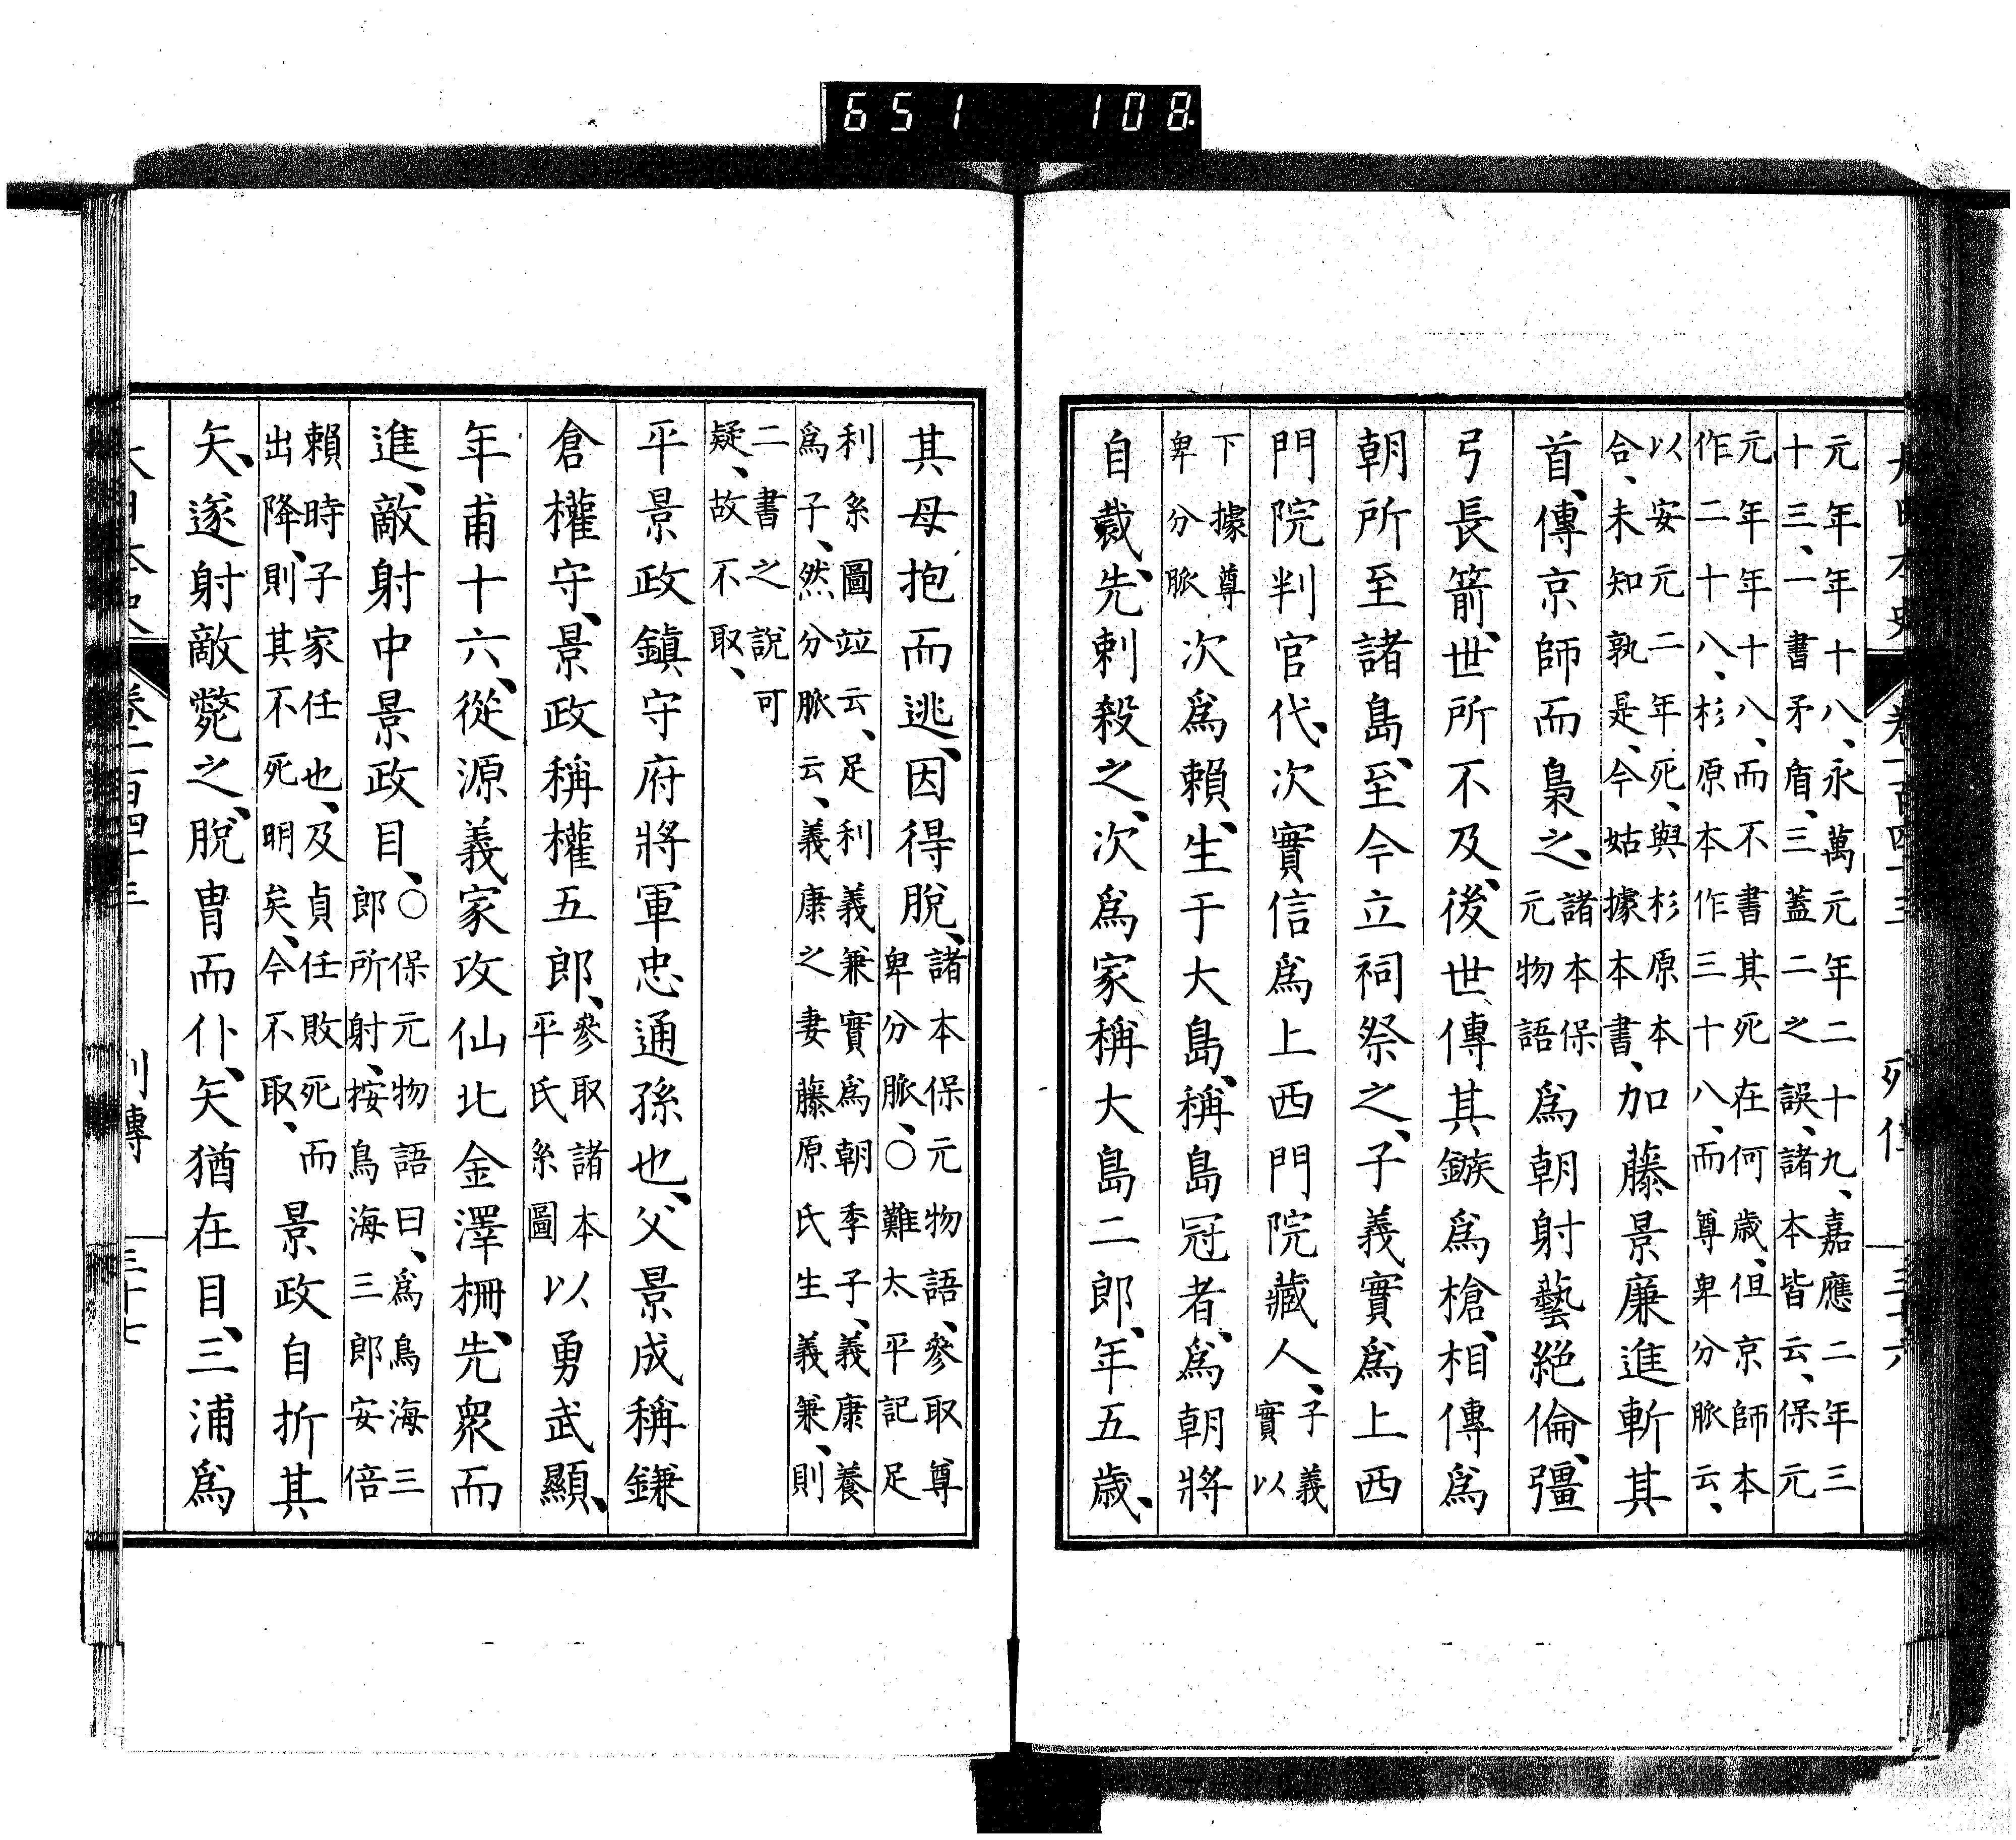 651 108
大日本史 卷一百四十三 三十六
元年年十八、永萬元年二十九、嘉應二年三
十三、一書矛盾、三蓋二之誤、諸本皆云、保元
元年年十八、而不書其死在何歳、但京師本
作二十八、杉原本作三十八、而尊卑分脈云、
以安元二年死、與杉原本
合、未知孰是、今姑據本書、加藤景廉進斬其
首、傳京師而梟之、諸本保元物語爲朝射藝絶倫、彊
弓長箭、世所不及、後世傳其鏃爲槍、相傳爲
朝所至諸島、至今立祠祭之、子義實爲上西
門院判官代、次實信爲上西門院藏人、子義實以
下據尊卑分脈次爲賴、生于大島、稱島冠者、爲朝將
自裁、先刺殺之、次爲家稱大島二郎、年五歳、
其母抱而逃、因得脫、諸本保元物語、參取尊卑分脈、○難太平記足
利系圖竝云、足利義兼實爲朝季子、義康養
爲子、然分脈云、義康之妻藤原氏生義兼、則
二書之說可
疑、故不取、
平景政鎮守府將軍忠通孫也、父景成稱鎌
倉權守、景政稱權五郎、參取諸本平氏系圖以勇武顯、
年甫十六、從源義家攻仙北金澤柵、先衆而
進、敵射中景政目、○保元物語曰、爲鳥海三郎所射、按鳥海三郎安倍
賴時子家任也、及貞任敗死而
出降、則其不死明矣、今不取、景政自折其
矢、遂射敵斃之、脫冑而仆、矢猶在目、三浦爲
大日本史 卷一百四十三 列傳 三十七